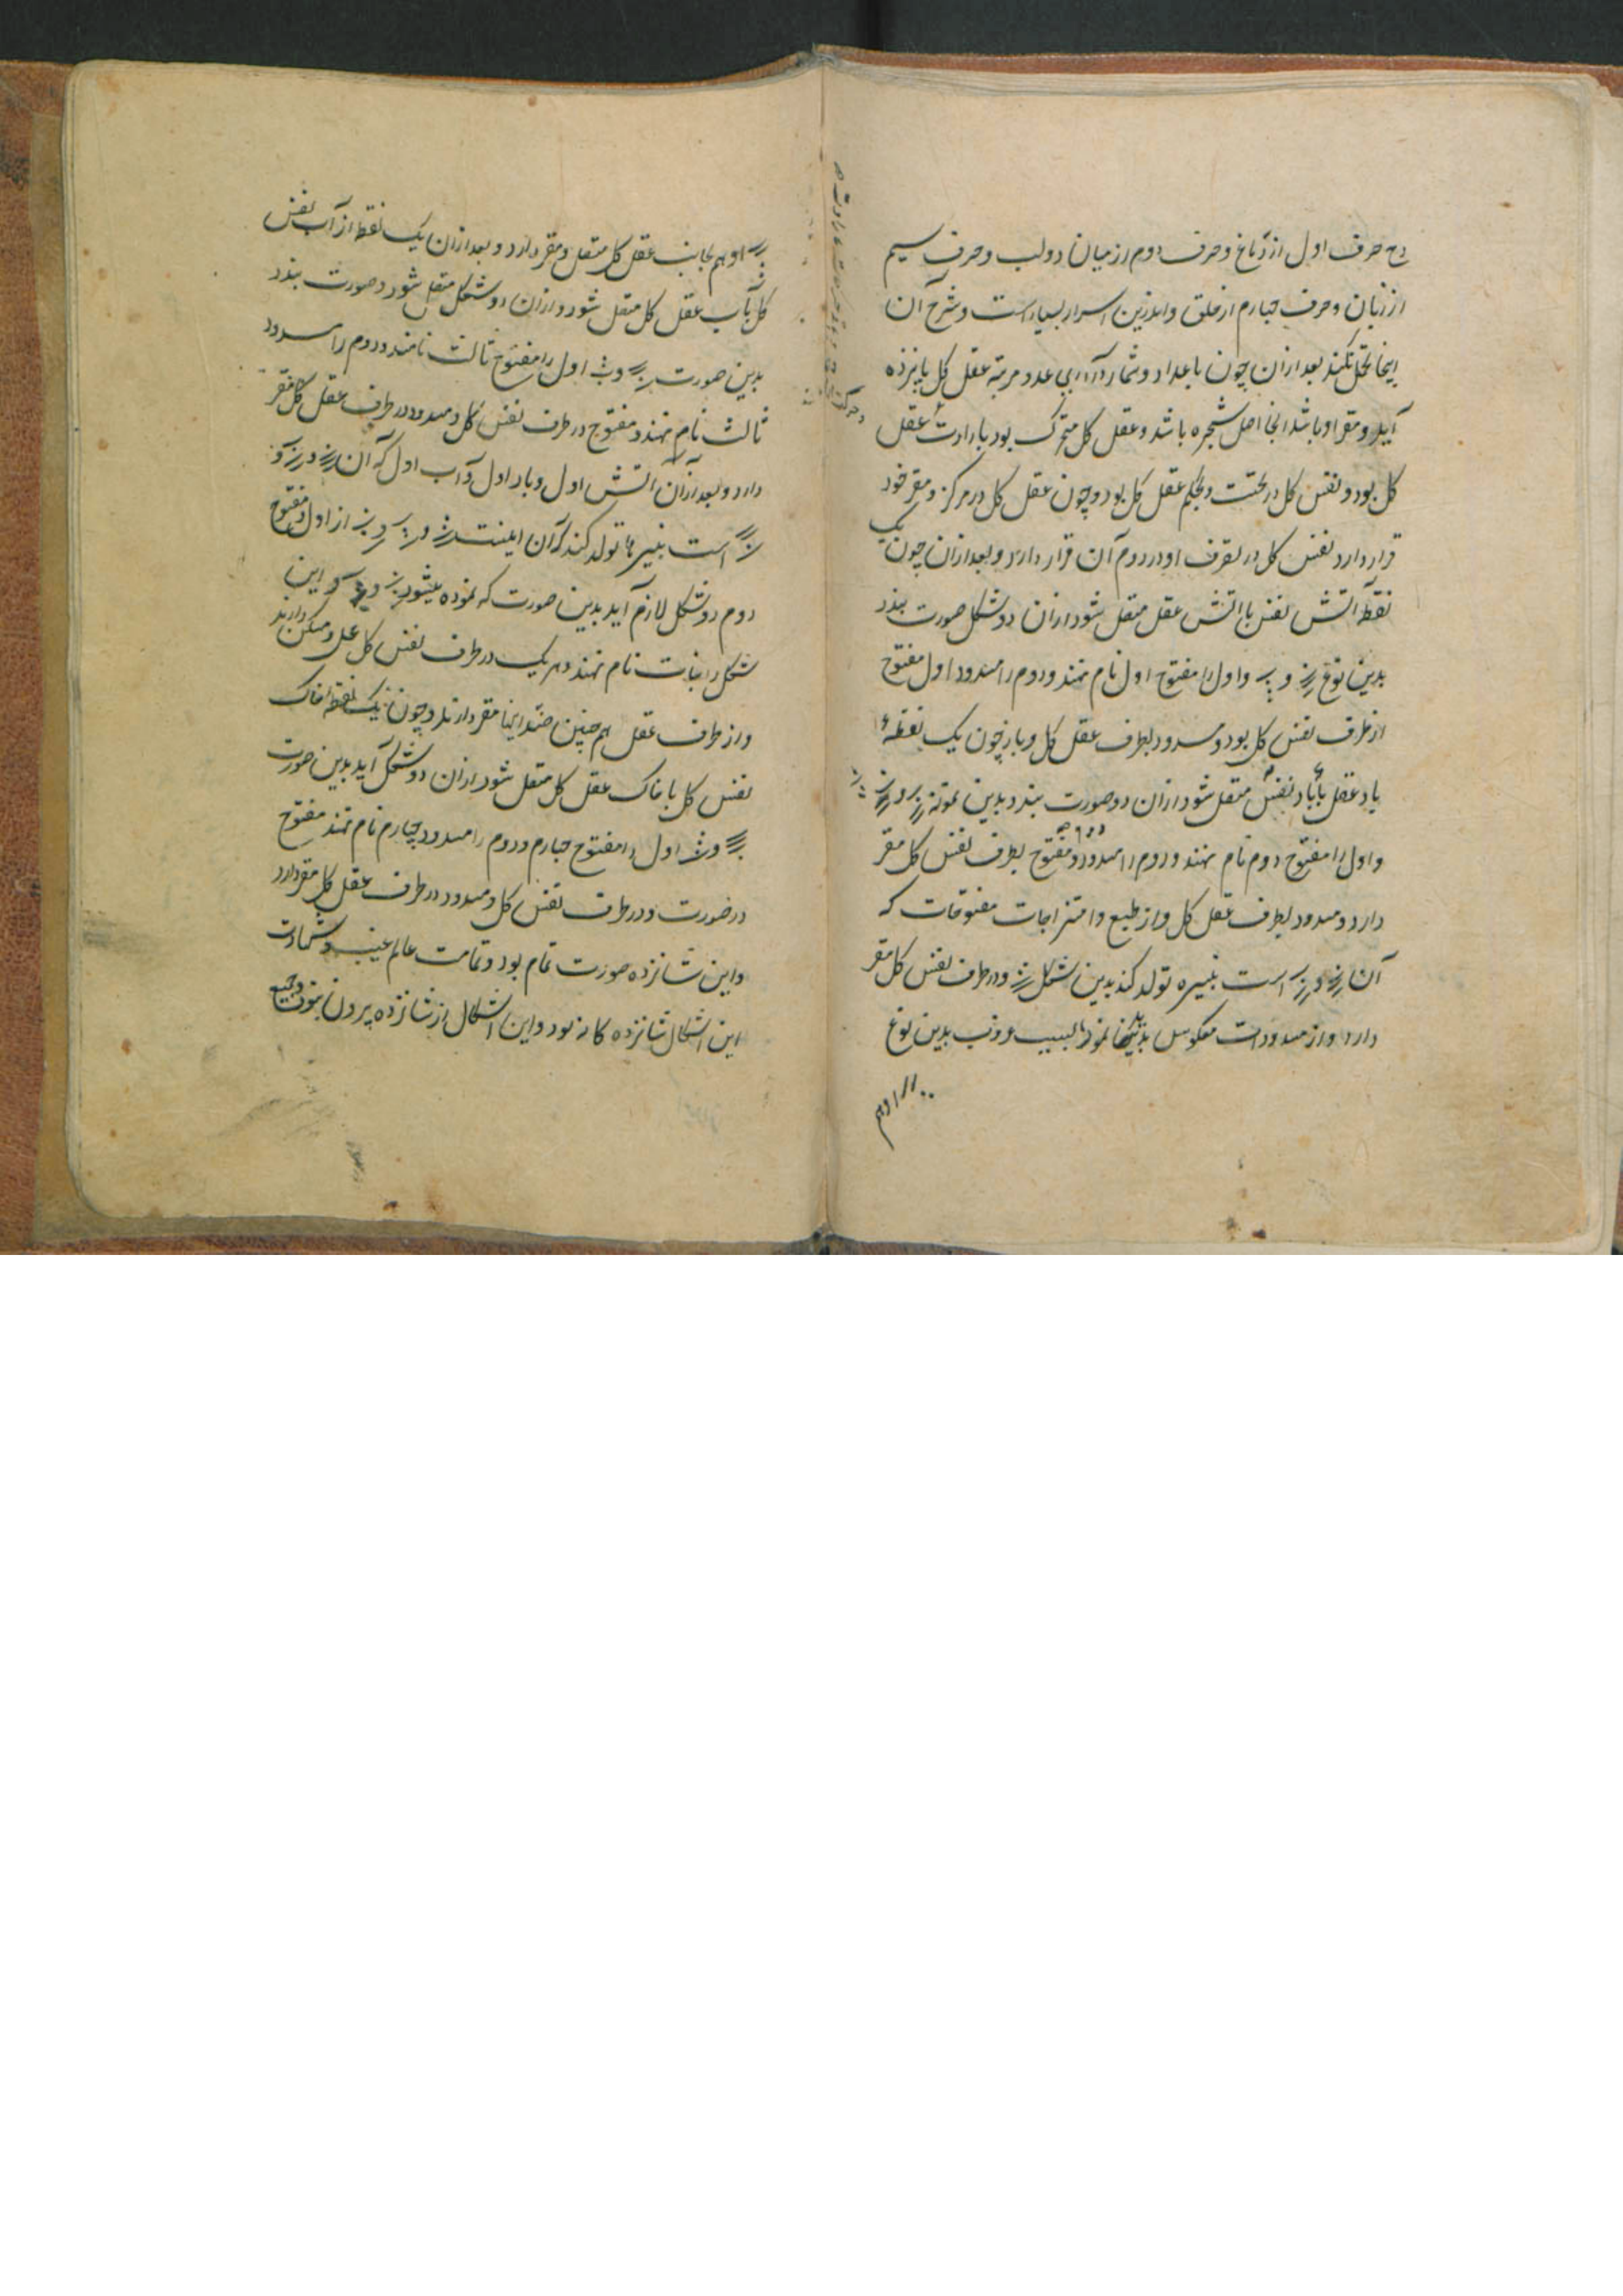 دح حرف اول از دماغ و حرف دوم از میان دو لب و حرف سیم
از زبان و حرف چهارم از حلق و اندرین اسرار بسیار است و شرح آن
اینجا تحمل نکند بعد از آن چون باعداد و شمار در آری عدد مرتبه عقل کل پانزده
آید و مقر او باشد انجا اصل شجره باشد و عقل کل متحرک بود بارادت عقل
کل بود و نفس کل در تحت و حکم عقل کل بود و چون عقل کل در مرکز و مقر خود
قرار دارد نفس کل در تصرف او در دوم آن قرار دارد و بعد از آن چون یک
نقطه آتش نفس با آتش عقل متصل شود از آن دو شکل صورت بندد
بدین نوع و واول را مفتوح اول نام نهند و دوم را مسدود اول مفتوح
از طرف نفس کل بود و مسدود بطرف عقل کل و باز چون یک نقطه
باد عقل با باد نفس متصل شود از آن دو صورت بندد بدین نمونه
و اول را مفتوح دوم نام نهند و دوم را مسدود دوم مفتوح بطرف نفس کل مقر
دارد و مسدود بطرف عقل کل و از طبع و امتزاجات مفتوحات که
آن و است نبیره تولد کند بدین شکل و در طرف نفس کل مقر
دارد و از مسدودات معکوس بدین نوع
او هم
او هم بجانب عقل کل متصل و مقر دارد و بعد از آن یک نقطه از آب نفس
کل بآب عقل کل متصل شود و از آن دو شکل متصل شود و صورت بندد
بدین صورت و اول را مفتوح ثالث نامند و دوم را مسدود
ثالث نام نهند و مفتوح در طرف نفس کل و مسدود در طرف عقل کل مقر
دارد و بعد از آن آتش اول و باد اول و آب اول که آن و
است نبیرها تولد کند که آن اینست و و از اول مفتوح
دوم دو شکل لازم آید بدین صورت که نموده میشود و این
شکل را بنات نام نهند و هر یک در طرف نفس کل عمل و مسکن دارند
و از طرف عقل هم چنین ضد اینها مقر دارند و چون یک نقطه خاک
نفس کل با خاک عقل کل متصل شود از آن دو شکل آید بدین صورت
و اول را مفتوح چهارم و دوم را مسدود چهارم نام نهند مفتوح
در صورت و در طرف نفس کل و مسدود در طرف عقل کل مقر دارد
و این شانزده صورت تمام بود و تمامت عالم غیب و شهادت
این اشکال شانزده کانه بود و این اشکال از شانزده بیرون نبود و جمیع